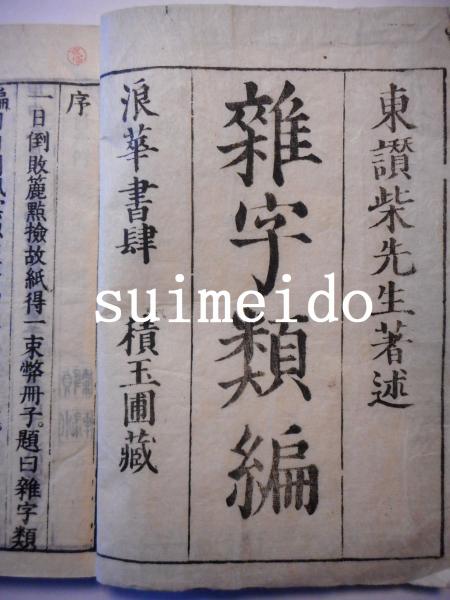 東讃柴先生著述
雜字類編
浪華書肆 積玉圃藏
序
一日倒敗簏㸃撿故紙得一束弊冊子。題曰雜字類
編
suimeido